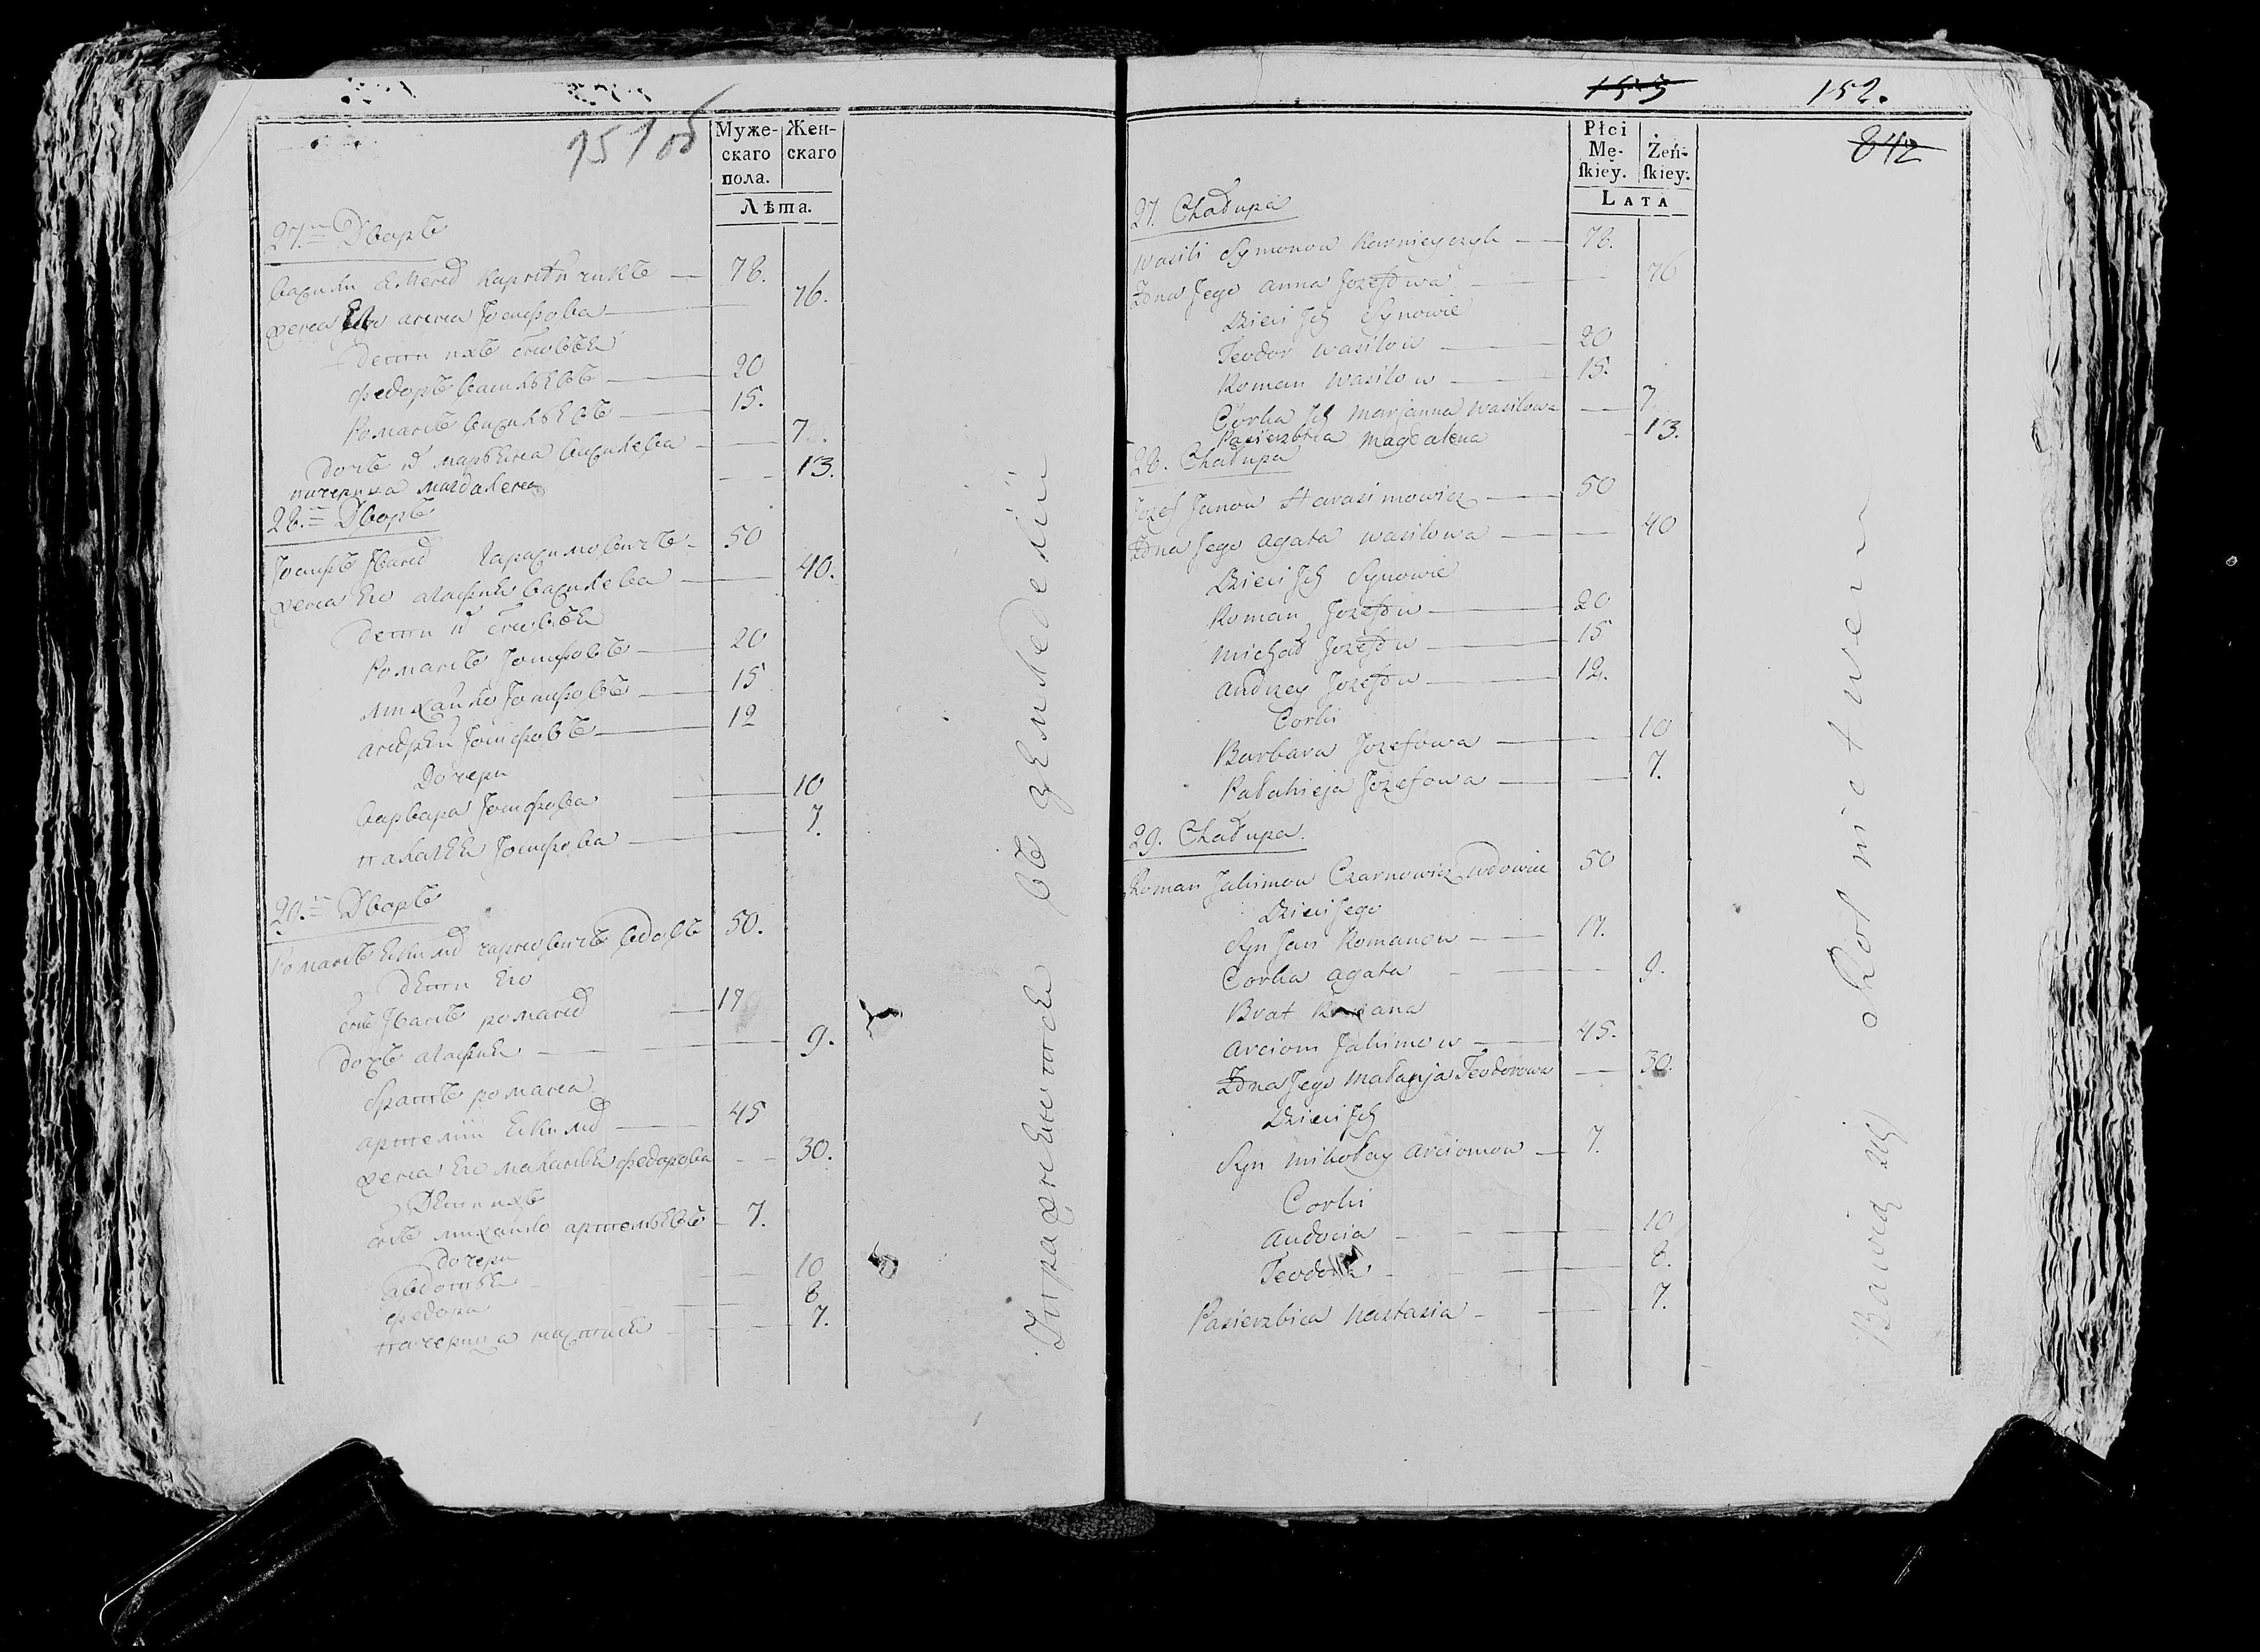 151 об
Муже-
скаго
пола.
Жен-
скаго
Лѣта.
27.й Дворъ
Василий Семенов Карнейчикъ — 78.
жена Его анна Іосифова — 76.
Дети ихъ сновья
Федоръ Васильевъ — 20
Романъ Васильевъ — 15.
Дочь их марьяна Василева — 7.
падчерица магдалена — 13.
28.й Дворъ
Іосифъ Іванов Гарасимовичъ — 50
жена Его агафия Василева — 40.
Дети их сновья
Романъ Іосифовъ — 20
михайло Іосифовъ — 15
андрей Іосифовъ — 12
Дочери
варвара Іосифова — 10
палагея Іосифова — 7.
29.й Дворъ
Романъ Екимов чарновичъ вдовъ 50.
Дети Его
снъ Іванъ романов — 17
дочь агафия — 9.
братъ романа
артемий Екимов — 45
жена Его маланья федорова — 30.
Дети ихъ
снъ михайло артемьевъ — 7.
дочери
авдотья — 10
федора — 8
падчерица настасья — 7.
Упражняются въ земледелии
155
152.
842
Płci
Mę-
ſkiey.
Żeń-
ſkiey.
LATA
27. Chałupa
Wasili Symonow Karnieyczyk — 78.
Żona Jego Anna Jozefowa — 76
Dzieci Ich Synowie
Teodor Wasilow — 20
Roman Wasilow — 15.
Corka Ich Marjanna Wasilowa — 7
Pasierzbica Magdalena — 13.
28. Chałupa
Jozef Janow Harasimowicz — 50
Żona Jego Agata Wasilowa — 40
Dzieci Ich Synowie
Roman Jozefow — 20
Michał Jozefow — 15
Andrzey Jozefow — 12.
Corki
Barbara Jozefowa — 10
Pałahieja Jozefowa — 7.
29. Chałupa.
Roman Jakimow Czarnowicz Wdowiec 50
Dzieci Jego
Syn Jan Romanow — 17.
Corka Agata — 9.
Brat Romana
Arciom Jakimow — 45.
Żona Jego Małanja Teodorowa — 30.
Dzieci Ich
Syn Mikołay Arciomow — 7.
Corki
Audocia — 10
Teodora — 8.
Pasierzbica Nastazia — 7.
Bawią się Rolnictwem